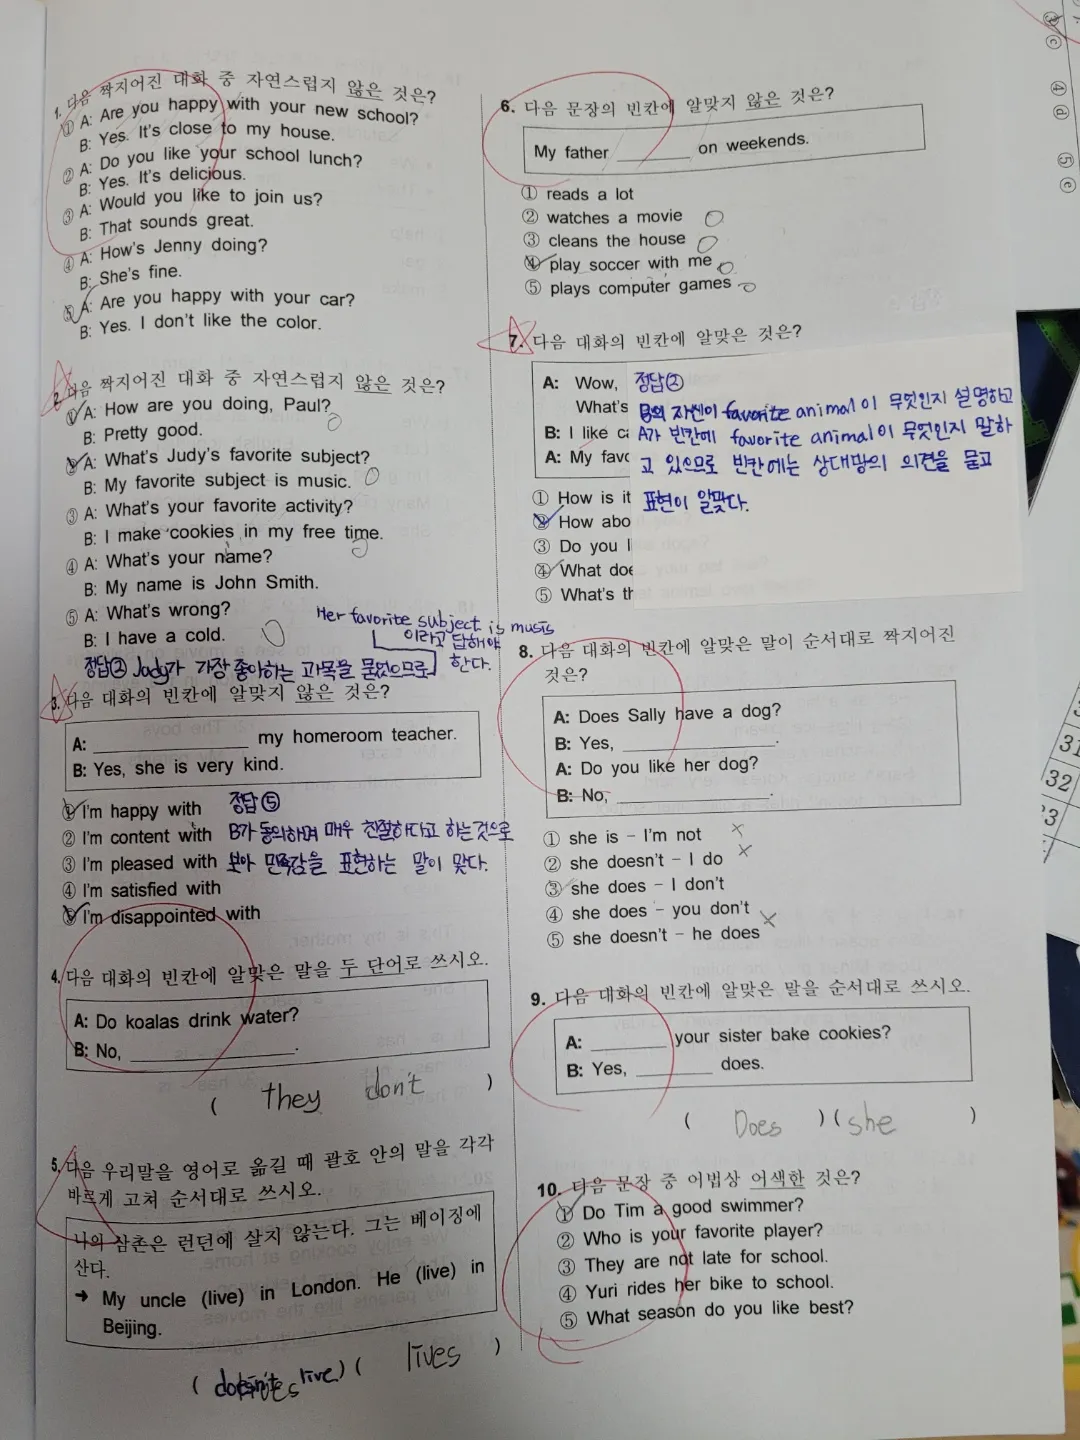 1. 다음 짝지어진 대화 중 자연스럽지 않은 것은?
① A: Are you happy with your new school?
B: Yes. It's close to my house.
② A: Do you like your school lunch?
B: Yes. It's delicious.
③ A: Would you like to join us?
B: That sounds great.
④ A: How's Jenny doing?
B: She's fine.
⑤ A: Are you happy with your car?
B: Yes. I don't like the color.
2. 다음 짝지어진 대화 중 자연스럽지 않은 것은?
① A: How are you doing, Paul?
B: Pretty good.
② A: What's Judy's favorite subject?
B: My favorite subject is music.
③ A: What's your favorite activity?
B: I make cookies in my free time.
④ A: What's your name?
B: My name is John Smith.
⑤ A: What's wrong?
B: I have a cold.
Her favorite subject is musis
이라고 답해야
한다.
정답② Judy가 가장 좋아하는 과목을 물었으므로
3. 다음 대화의 빈칸에 알맞지 않은 것은?
A: ____ my homeroom teacher.
B: Yes, she is very kind.
① I'm happy with 정답⑤
② I'm content with B가 동의하며 매우 친절하다고 하는것으로
③ I'm pleased with 보아 만족감을 표현하는 말이 맞다.
④ I'm satisfied with
⑤ I'm disappointed with
4. 다음 대화의 빈칸에 알맞은 말을 두 단어로 쓰시오.
A: Do koalas drink water?
B: No, ____.
( they don't )
5. 다음 우리말을 영어로 옮길 때 괄호 안의 말을 각각
바르게 고쳐 순서대로 쓰시오.
나의 삼촌은 런던에 살지 않는다. 그는 베이징에
산다.
→ My uncle (live) in London. He (live) in
Beijing.
( doesn't live) ( lives )
6. 다음 문장의 빈칸에 알맞지 않은 것은?
My father ____ on weekends.
① reads a lot
② watches a movie
③ cleans the house
④ play soccer with me
⑤ plays computer games
7. 다음 대화의 빈칸에 알맞은 것은?
A: Wow,
What's
B: I like
A: My
정답②
B의 자신이 favorite animal이 무엇인지 설명하고
A가 빈칸에 favorite animal이 무엇인지 말하
고 있으므로 빈칸에는 상대방의 의견을 묻고
표현이 알맞다.
① How is it
② How abo
③ Do you
④ What doe
⑤ What's th
8. 다음 대화의 빈칸에 알맞은 말이 순서대로 짝지어진
것은?
A: Does Sally have a dog?
B: Yes, ____.
A: Do you like her dog?
B: No, ____.
① she is – I'm not
② she doesn't – I do
③ she does – I don't
④ she does – you don't
⑤ she doesn't – he does
9. 다음 대화의 빈칸에 알맞은 말을 순서대로 쓰시오.
A: ____ your sister bake cookies?
B: Yes, ____ does.
( Does ) ( she )
10. 다음 문장 중 어법상 어색한 것은?
① Do Tim a good swimmer?
② Who is your favorite player?
③ They are not late for school.
④ Yuri rides her bike to school.
⑤ What season do you like best?
③ c ④ d ⑤ e
31
32